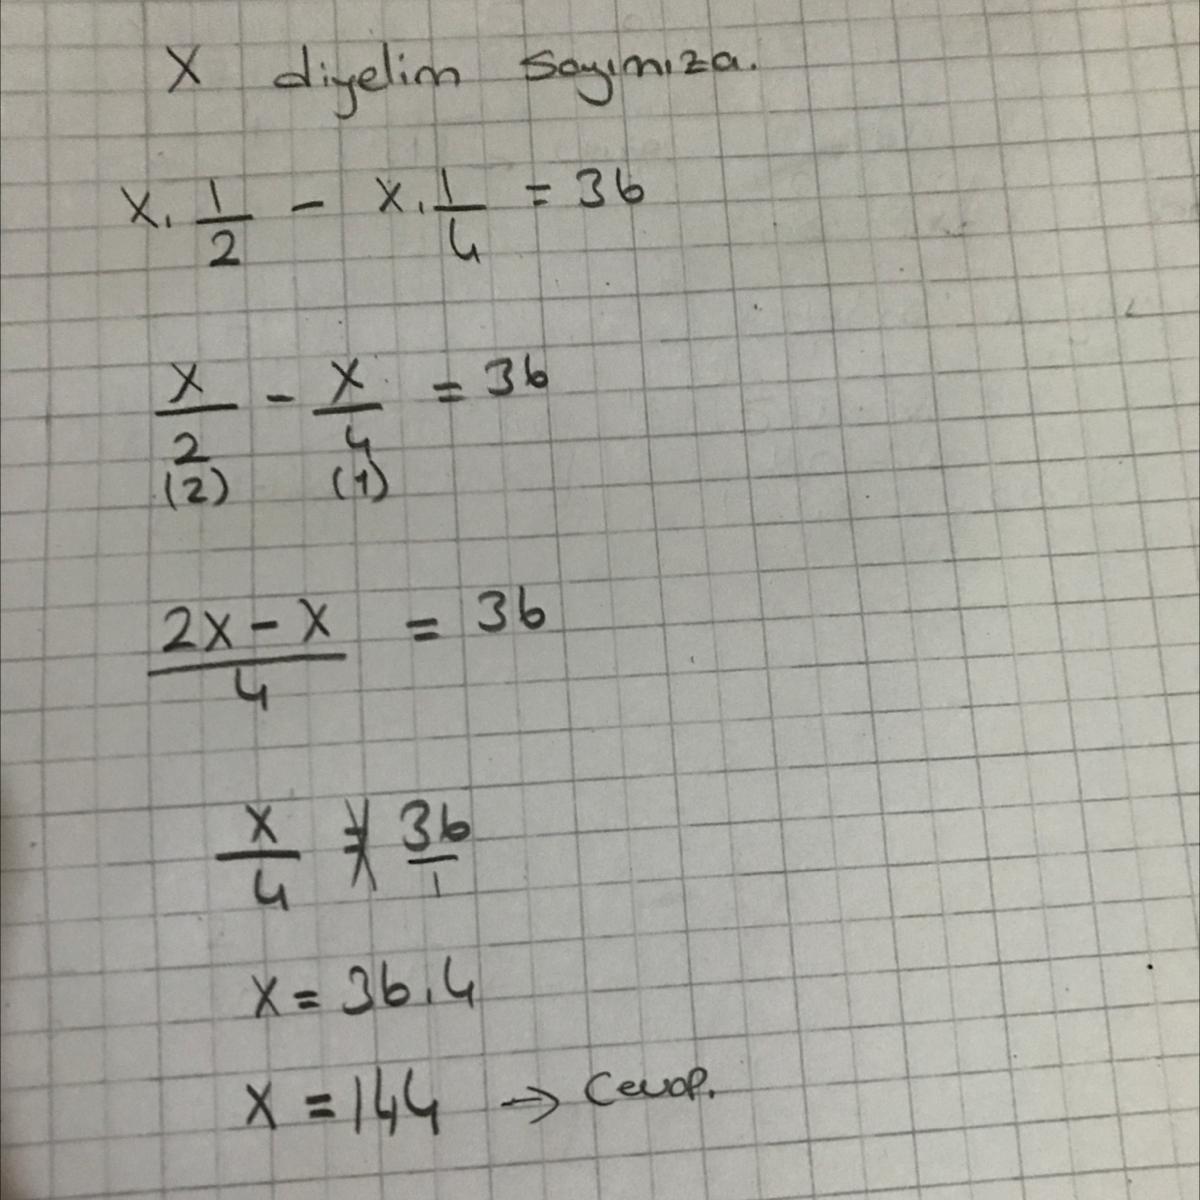 X diyelim sayımıza.
x. 1/2 - x. 1/4 = 36
x/2 - x/4 = 36
(2) (1)
2x - x / 4 = 36
x/4 = 36/1
x = 36.4
x = 144 → Cevap.